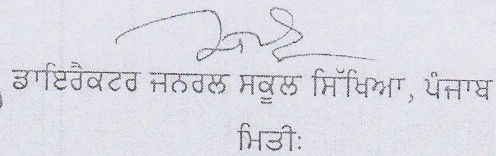 ਡਾਇਰੈਕਟਰ ਜਨਰਲ ਸਕੂਲ ਸਿੱਖਿਆ, ਪੰਜਾਬ
ਮਿਤੀਃ